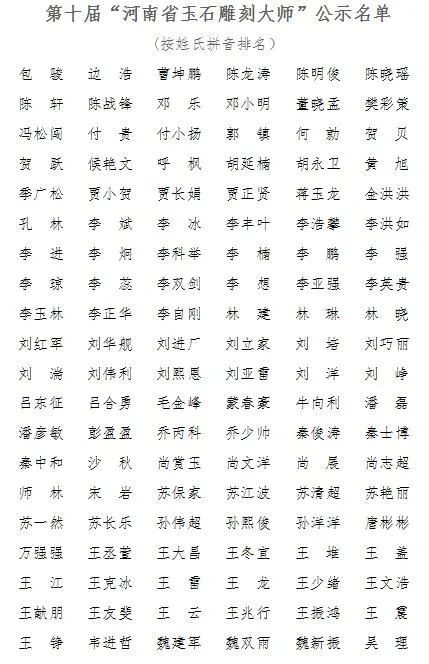 第十届“河南省玉石雕刻大师”公示名单
(按姓氏拼音排名)
包 骏 边 浩 曹坤鹏 陈龙涛 陈明俊 陈晓瑶
陈 轩 陈战锋 邓 乐 邓小明 董晓孟 樊彩策
冯松阁 付 贵 付小扬 郭 镇 何 勍 贺 贝
贺 跃 候艳文 呼 枫 胡延楠 胡永卫 黄 旭
季广松 贾小贺 贾长娟 贾正贤 蒋玉龙 金洪洪
孔 林 李 斌 李 冰 李丰叶 李浩攀 李洪如
李 进 李 炯 李科举 李 楠 李 鹏 李 强
李 琼 李 蕊 李双剑 李 想 李亚强 李英贵
李玉林 李正华 李自刚 林 建 林 琳 林 晓
刘红军 刘华舰 刘进厂 刘立家 刘 培 刘巧丽
刘 淌 刘伟利 刘熙恩 刘亚雷 刘 洋 刘 峥
吕东征 吕合勇 毛金峰 蒙春豪 牛向利 潘 磊
潘彦敏 彭盈盈 乔丙科 乔少帅 秦俊涛 秦士博
秦中和 沙 秋 尚赏玉 尚文洋 尚 展 尚志超
师 林 宋 岩 苏保家 苏江波 苏清超 苏艳丽
苏一然 苏长乐 孙伟超 孙熙俊 孙洋洋 唐彬彬
万强强 王丞萱 王大昌 王冬宜 王 堆 王 盖
王 江 王克冰 王 雷 王 龙 王少绪 王文浩
王献朋 王友斐 王 云 王兆行 王振鸿 王 震
王 铮 韦进哲 魏建军 魏双雨 魏新振 吴 理